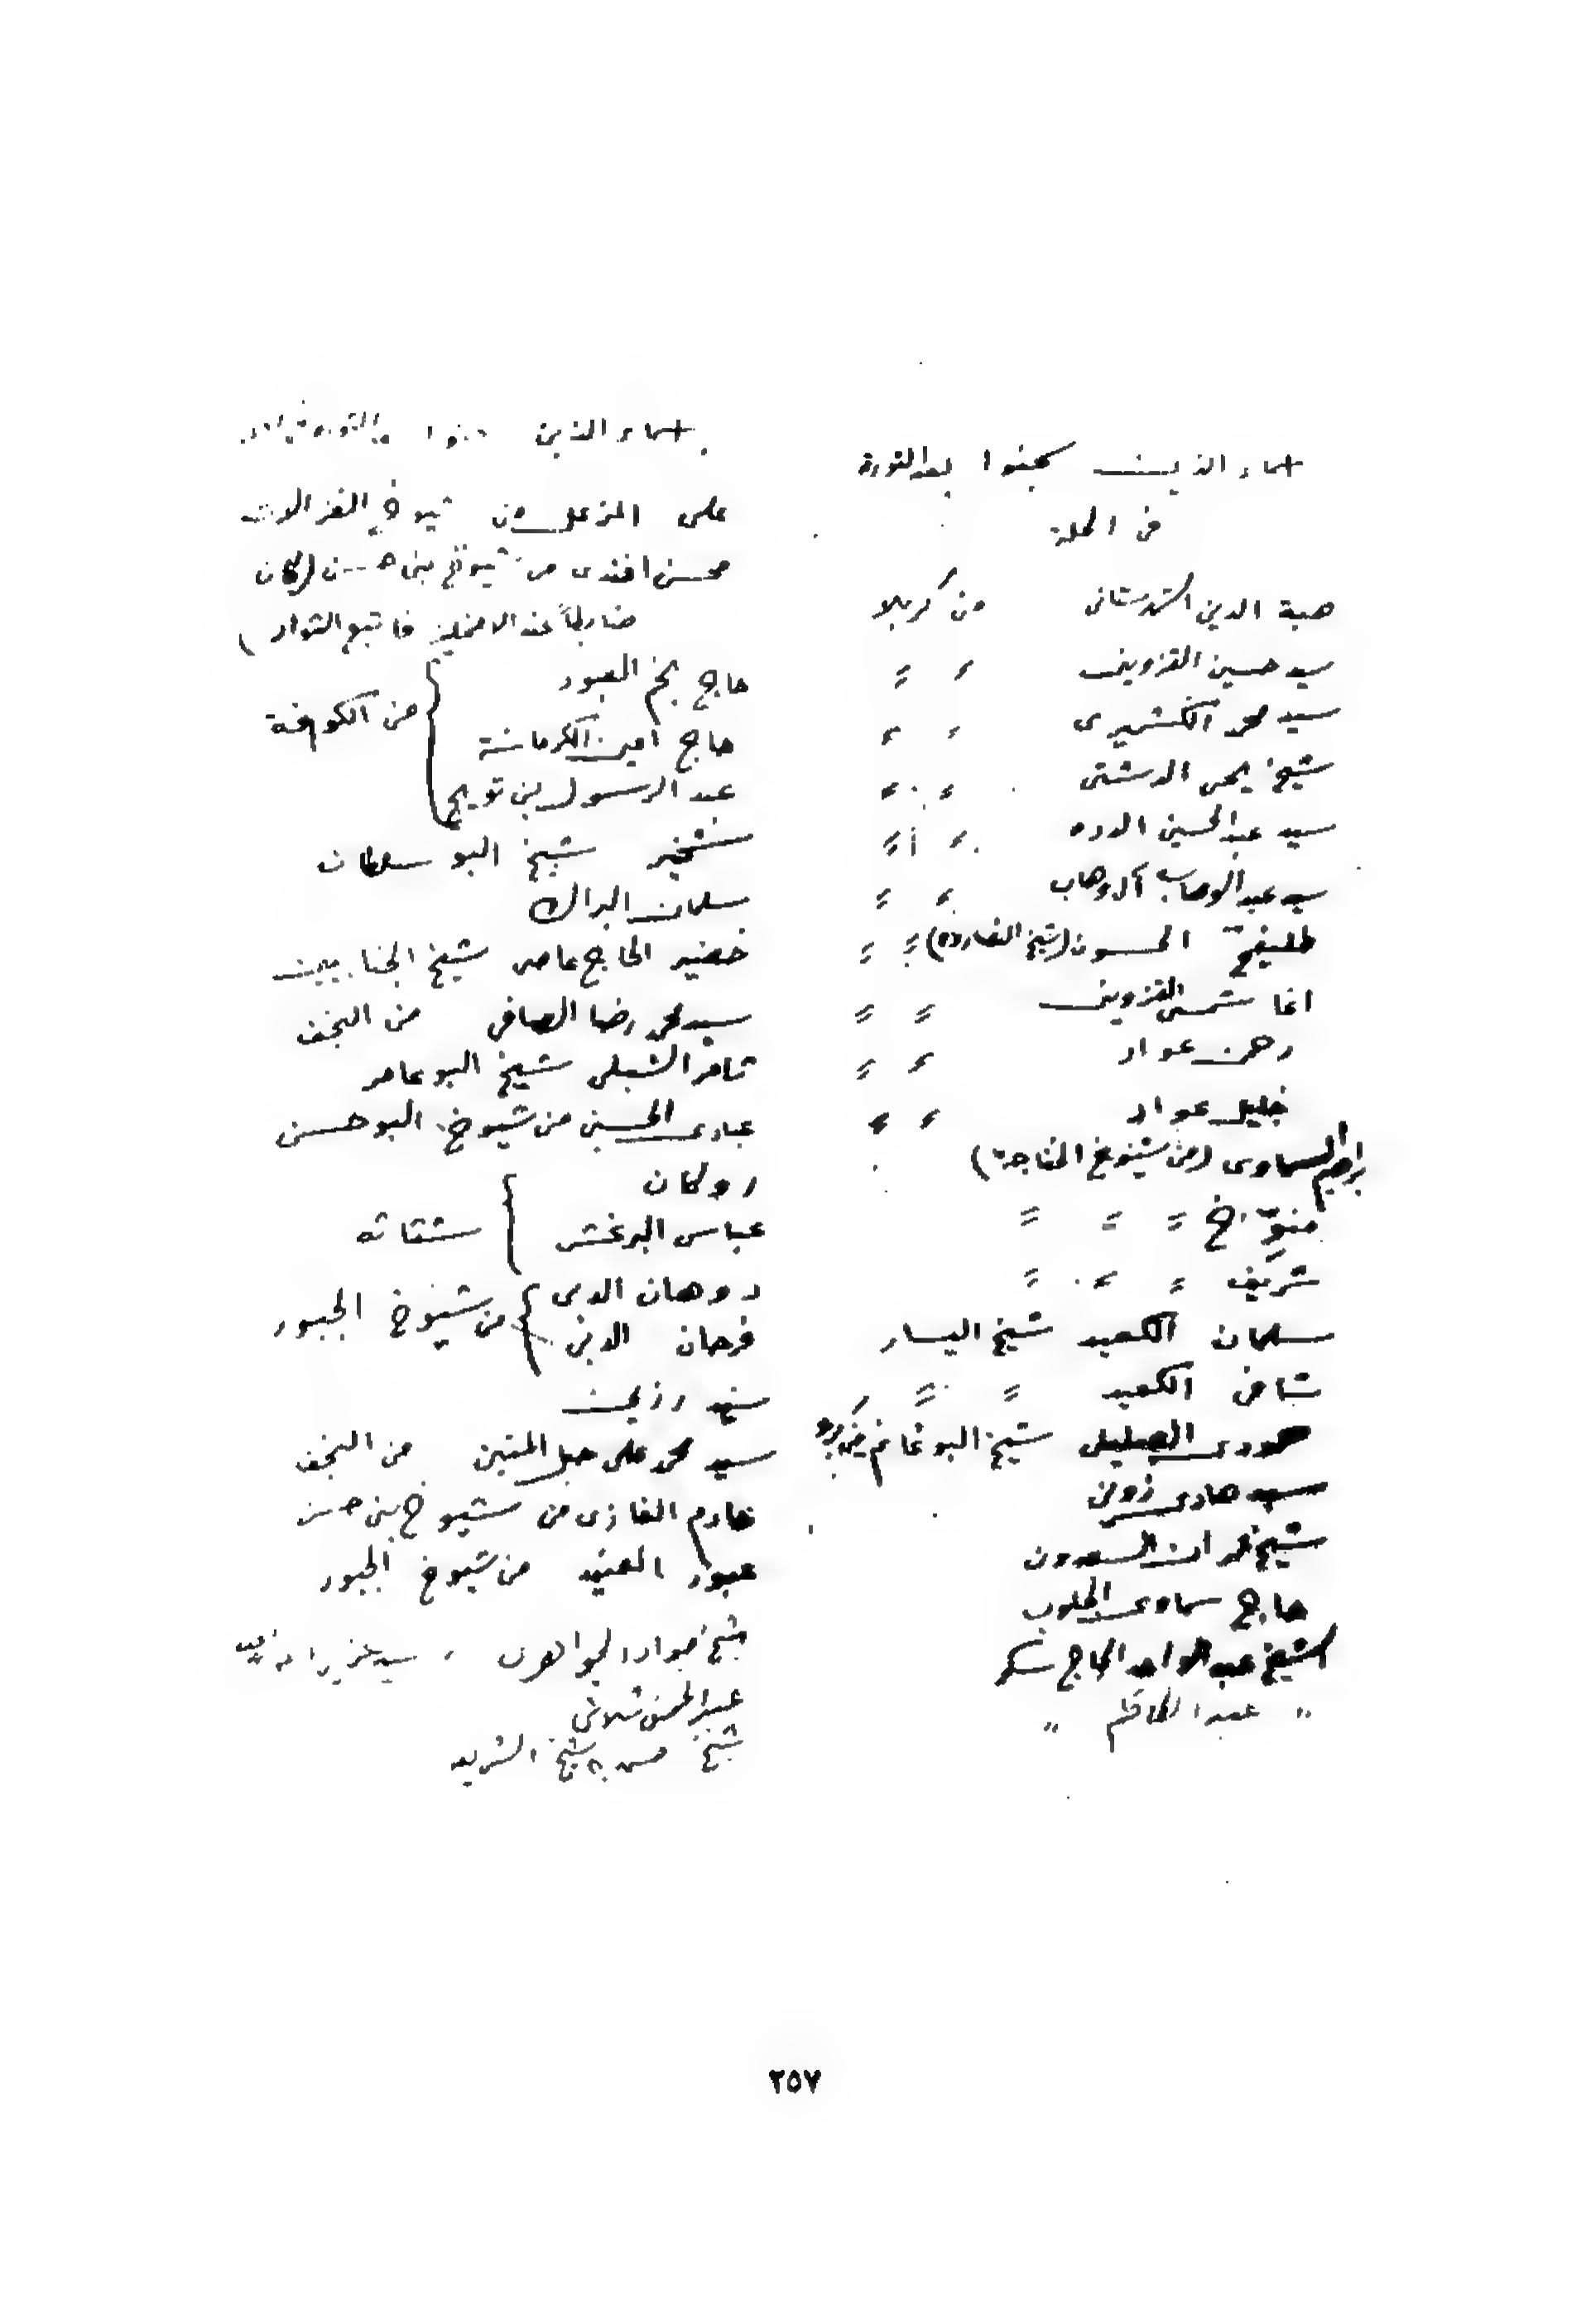 اسماء الذين سجنوا بعد الثورة
في الحلة
هبة الدين الشهرستاني من كربلا
سيد حسين القزويني〃 〃
سيد محمد الكشميري 〃 〃
شيخ يحيى الرشتي 〃 〃
سيد عبدالحسين الدده 〃 〃
سيد عبدالوهاب آل وهاب 〃 〃
طليفح الحسون (شيخ النصاروه) 〃 〃
اغا شمس القزويني 〃 〃
رهن عواد 〃 〃
خليل عواد 〃 〃
ابراهيم السماوي (من شيوخ الخفاجة)
〃 〃 〃
شريف 〃 〃 〃
سلمان الكعيد شيخ اليسار
شافي الكعيد 〃 〃
الصليلي شيخ البو غانم
سيد هادي زوين
شيخ عمران السعدون
حاج سماوي الجلوب
الشيخ عبد الواحد الحاج سكر
〃 عبد الكاظم 〃
اسماء الذين
علي المزعل من شيوخ الغزالات
محسن افندي من شيوخ بني حسن (كان
ضابطاً عند الانجليز فاتبع الثوار)
حاج نجم العبود
حاج امين الكرماشة
من الكوفة
عبد الرسول بن تويج
شخير شيخ البو سلطان
سلمان البراك
خضير الحاج عاصي شيخ الجنابيين
سيد محمد رضا الصافي من النجف
ثامر الشبلي شيخ البو عامر
عبادي الحسين من شيوخ البو حسن
روكان
عباس البرغش
شفاثه
دوهان الدبي
فرحان الدبي
من شيوخ الجبور
رزيج
سيد محمد علي حبل المتين من النجف
خادم الغازي من شيوخ بني حسن
عبود العنيد من شيوخ الجبور
شيخ جواد الجواهري ، سيد
عبد المحسن شلاش
شيخ
٢٥٧